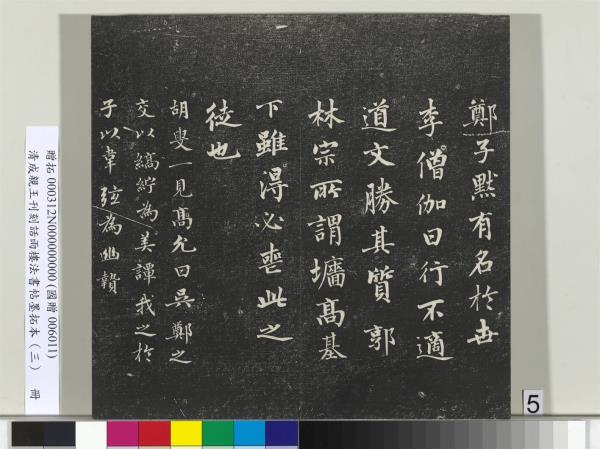 鄭子默有名於世
李僧伽曰行不適
道文勝其質郭
林宗所謂墻高基
下雖得必喪此之
徒也
胡叟一見高允曰吳鄭之
交以縞紵為美譚我之於
子以韋弦為幽贄
贈拓 000312N000000000 (國贈 006011)
清成親王刊刻話雨樓法書帖墨拓本（三） 冊
5